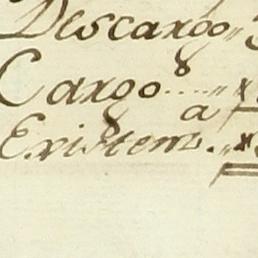 Descargo
Cargo
Existem.ª